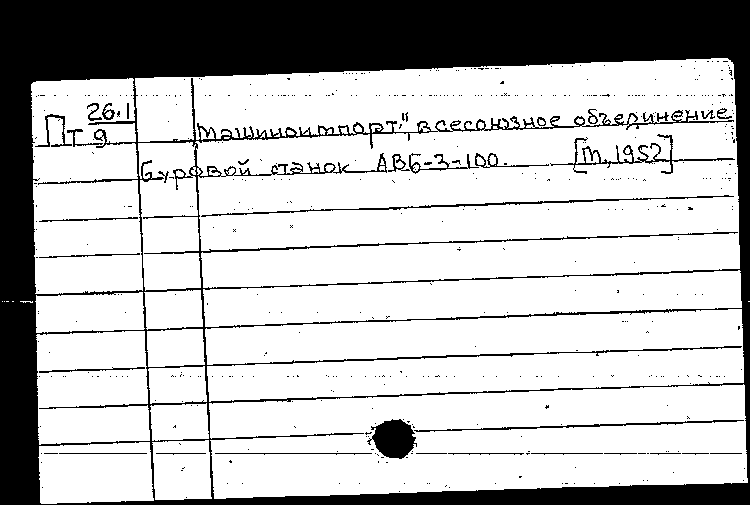 Пт 26.1/9
Машиноимпорт", всесоюзное объединение
Буровой станок АВБ-3-100. [М., 1952]